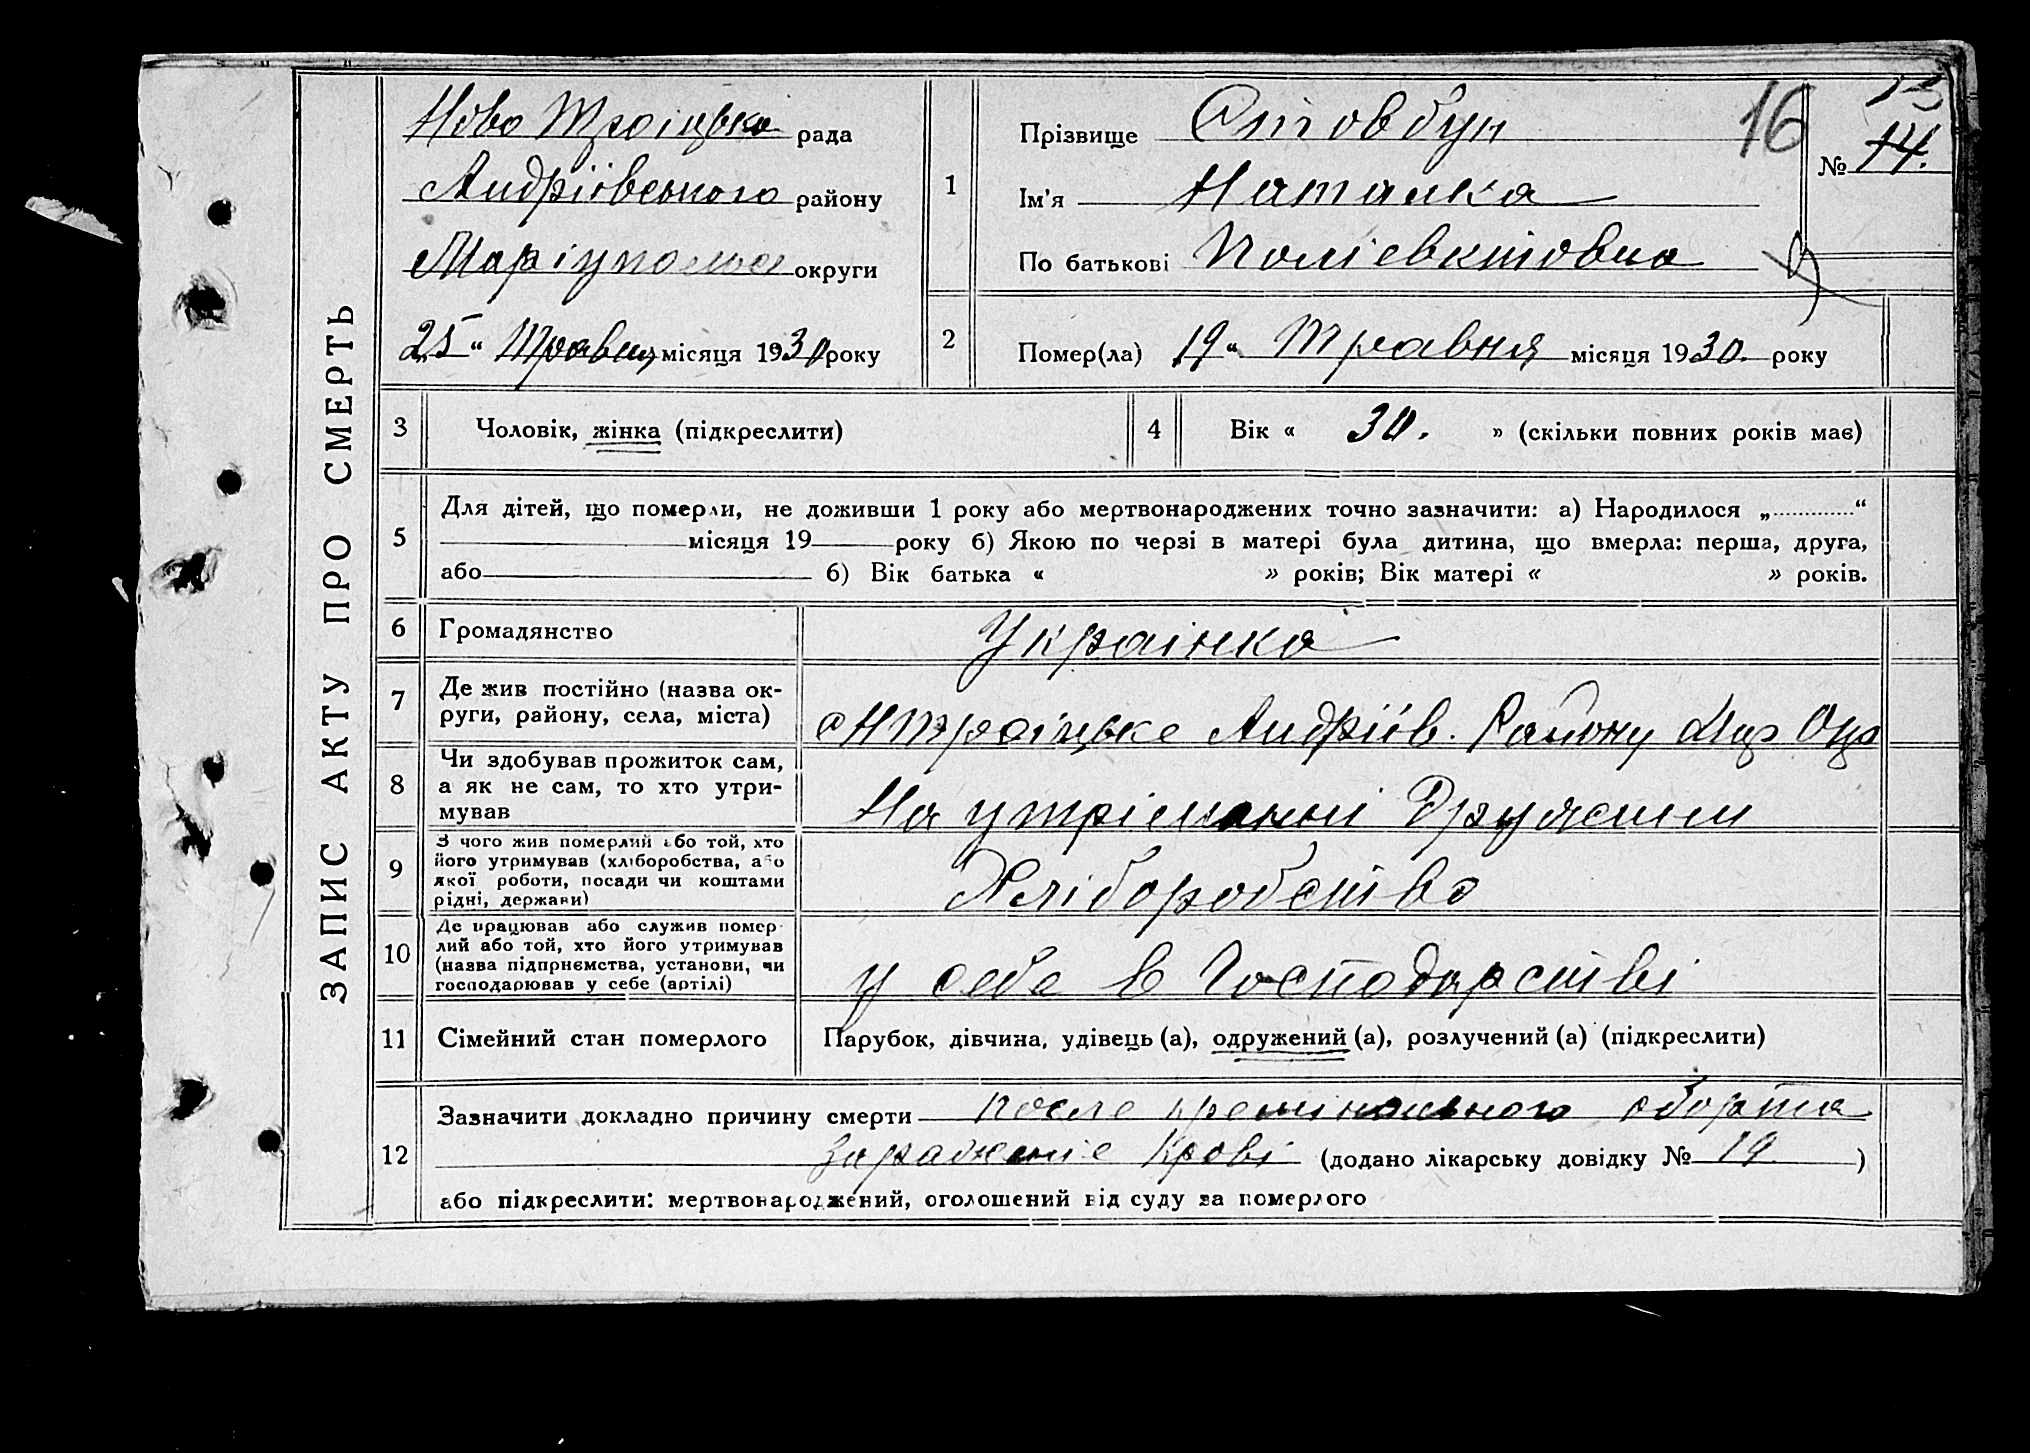 ЗАПИС АКТУ ПРО СМЕРТЬ
Ново Троіцька рада
Андріівського району
Маріупольсь округи
25 “ Травня місяця 1930 року
1
Прізвище Стовбун
Ім'я Наталка
По батькові Полієвктовна
16
13
№ 14.
2
Помер(ла) 19 “ Травня місяця 1930. року
3 Чоловік, жінка (підкреслити)
4 Вік « 30. » (скільки повних років має)
5
Для дітей, що померли, не доживши 1 року або мертвонароджених точно зазначити: а) Народилося „ “
місяця 19 року б) Якою по черзі в матері була дитина, що вмерла: перша, друга,
або б) Вік батька « » років; Вік матері « » років.
6 Громадянство Украінка
7 Де жив постійно (назва ок-
руги, району, села, міста)
с Нтроіцьке Андріів. Району Мар Окр
8 Чи здобував прожиток сам,
а як не сам, то хто утри-
мував
На утріманні Дружени
9 З чого жив померлий або той, хто
його утримував (хліборобства, або
якої роботи, посади чи коштами
рідні, держави)
Хліборобство
10 Де працював або служив помер-
лий або той, хто його утримував
(назва підприємства, установи, чи
господарював у себе (артілі)
у себе в Господарстві
11 Сімейний стан померлого Парубок, дівчина, удівець (а), одружений (а), розлучений (а) (підкреслити)
12
Зазначити докладно причину смерти после кремінального аборта
заражение крові (додано лікарську довідку № 19 )
або підкреслити: мертвонароджений, оголошений від суду за померлого